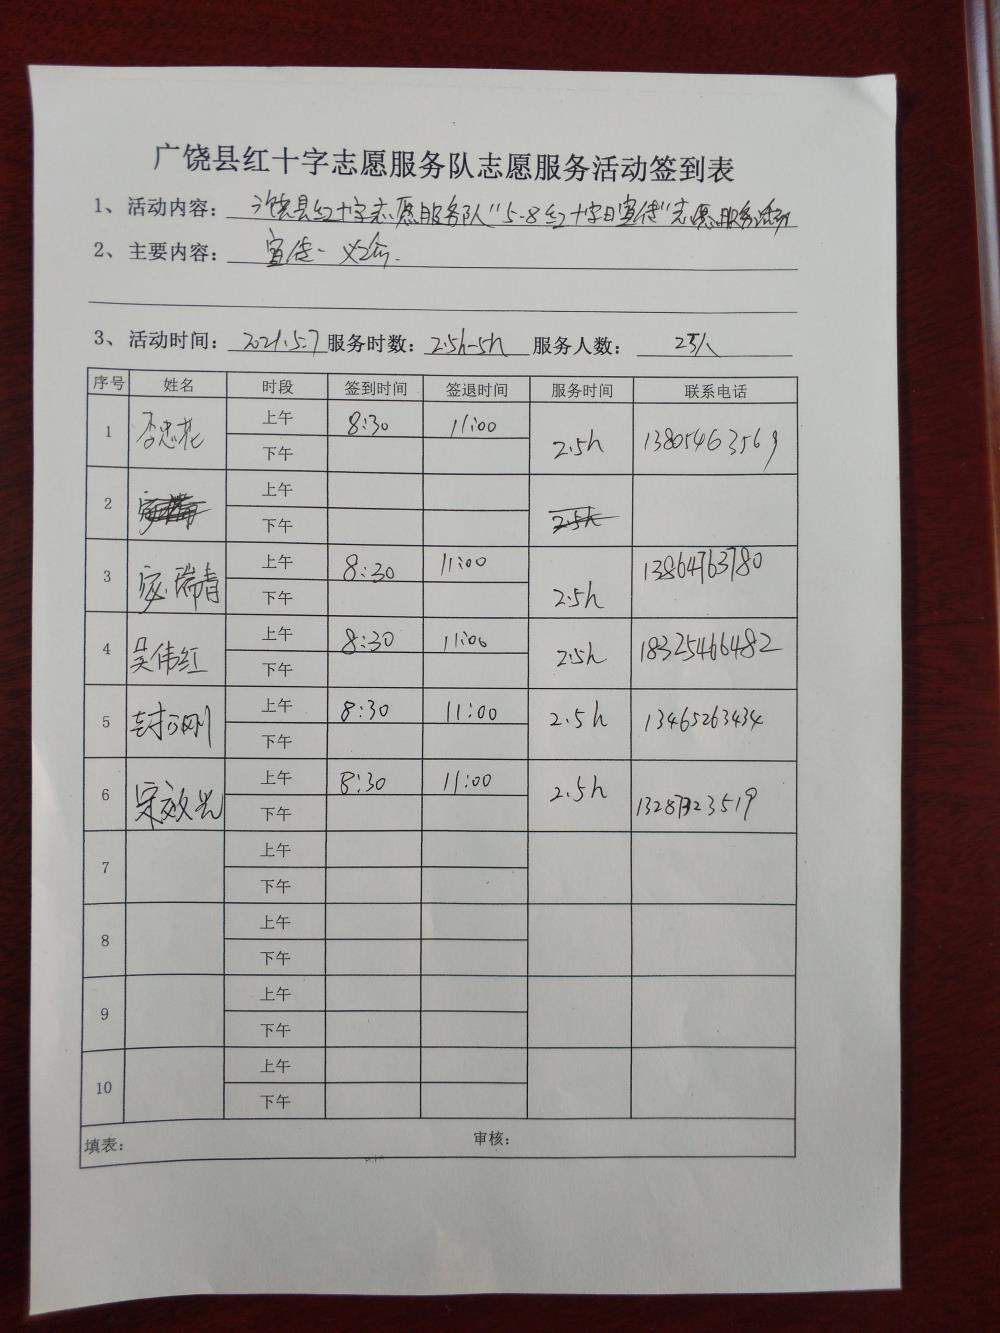 广饶县红十字志愿服务队志愿服务活动签到表
1、活动内容：广饶县红十字志愿服务队"5·8红十字日宣传"志愿服务活动
2、主要内容：宣传、义诊.
3、活动时间：2021.5.7 服务时数：2.5h-5h 服务人数：
序号 姓名 时段 签到时间 签退时间 服务时间 联系电话
1 李忠花 上午 8:30 11:00 2.5h 13805463569
下午
2 上午 2.5h
下午
3 瑞青 上午 8:30 11:00 2.5h 13864763780
下午
4 吴伟红 上午 8:30 11:00 2.5h 18325466482
下午
5 上午 8:30 11:00 2.5h 13465263434
下午
6 宋效光 上午 8:30 11:00 2.5h
下午
7 上午
下午
8 上午
下午
9 上午
下午
10 上午
下午
填表： 审核：